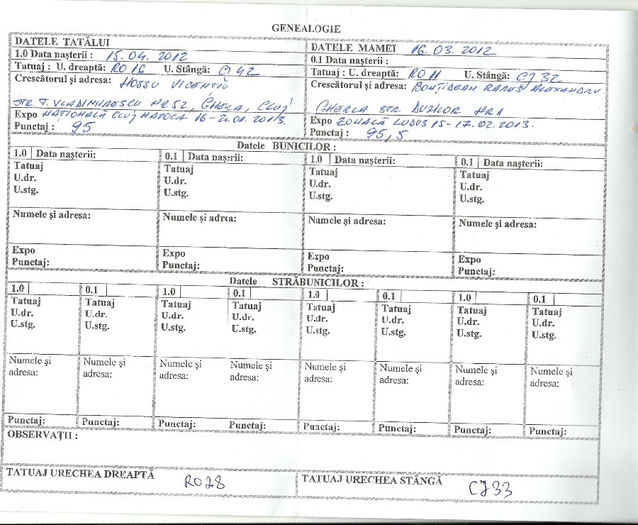 GENEALOGIE
DATELE TATĂLUI
1.0 Data nașterii : 15.04.2012
Tatuaj : U. dreaptă: RO16 U. Stângă: CJ42
Crescătorul și adresa: HOSSU VICENTIU
STR. T. VLADIMIRESCU NR 52, GHERLA, CLUJ
Expo NAȚIONALĂ CLUJ NAPOCA 16-20.01.2013
Punctaj : 95
DATELE MAMEI 16.03.2012
0.1 Data nașterii :
Tatuaj : U. dreaptă: RO11 U. Stângă: CJ32
Crescătorul și adresa: BONȚIDEAN RAREȘ ALEXANDRU
GHERLA STR. DUZILOR NR1
Expo ZONALĂ LUDUS 15-17.02.2013.
Punctaj : 95,5
Datele BUNICILOR :
1.0 Data nașterii: 0.1 Data nașrii: 1.0 Data nașterii: 0.1 Data nașterii:
Tatuaj Tatuaj Tatuaj Tatuaj
U.dr. U.dr. U.dr. U.dr.
U.stg. U.stg. U.stg. U.stg.
Numele și adresa: Numele și adresa: Numele și adresa: Numele și adresa:
Expo Expo Expo Expo
Punctaj: Punctaj: Punctaj: Punctaj:
Datele STRĂBUNICILOR :
1.0 0.1 1.0 0.1 1.0 0.1 1.0 0.1
Tatuaj Tatuaj Tatuaj Tatuaj Tatuaj Tatuaj Tatuaj Tatuaj
U.dr. U.dr. U.dr. U.dr. U.dr. U.dr. U.dr. U.dr.
U.stg. U.stg. U.stg. U.stg. U.stg. U.stg. U.stg. U.stg.
Numele și Numele și Numele și Numele și Numele și Numele și Numele și Numele și
adresa: adresa: adresa: adresa: adresa: adresa: adresa: adresa:
Punctaj: Punctaj: Punctaj: Punctaj: Punctaj: Punctaj: Punctaj: Punctaj:
OBSERVAȚII :
TATUAJ URECHEA DREAPTĂ RO28
TATUAJ URECHEA STÂNGĂ CJ33